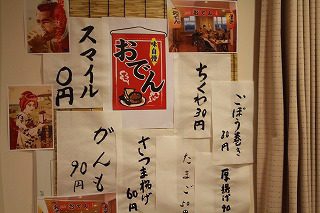 スマイル
0円
味自慢
おでん
ちくわ30円
ごぼう巻き
80円
がんも
90円
さつま揚げ
60円
たまご50円
厚揚げ90